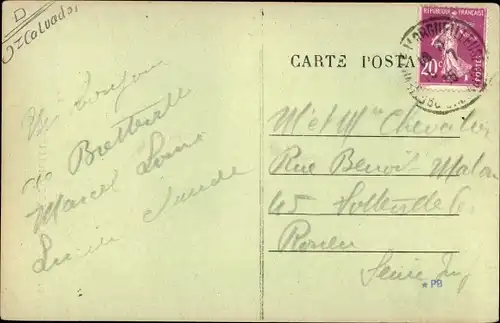 D
OZ Calvados
Un bonjour
de Bretteville
Marcel
Lucien Claude
CARTE POSTA
RÉPUBLIQUE FRANÇAISE
20c
M et Mme Chevalier
Rue Benoit Malon
45
Rouen
Seine Inf
*PB